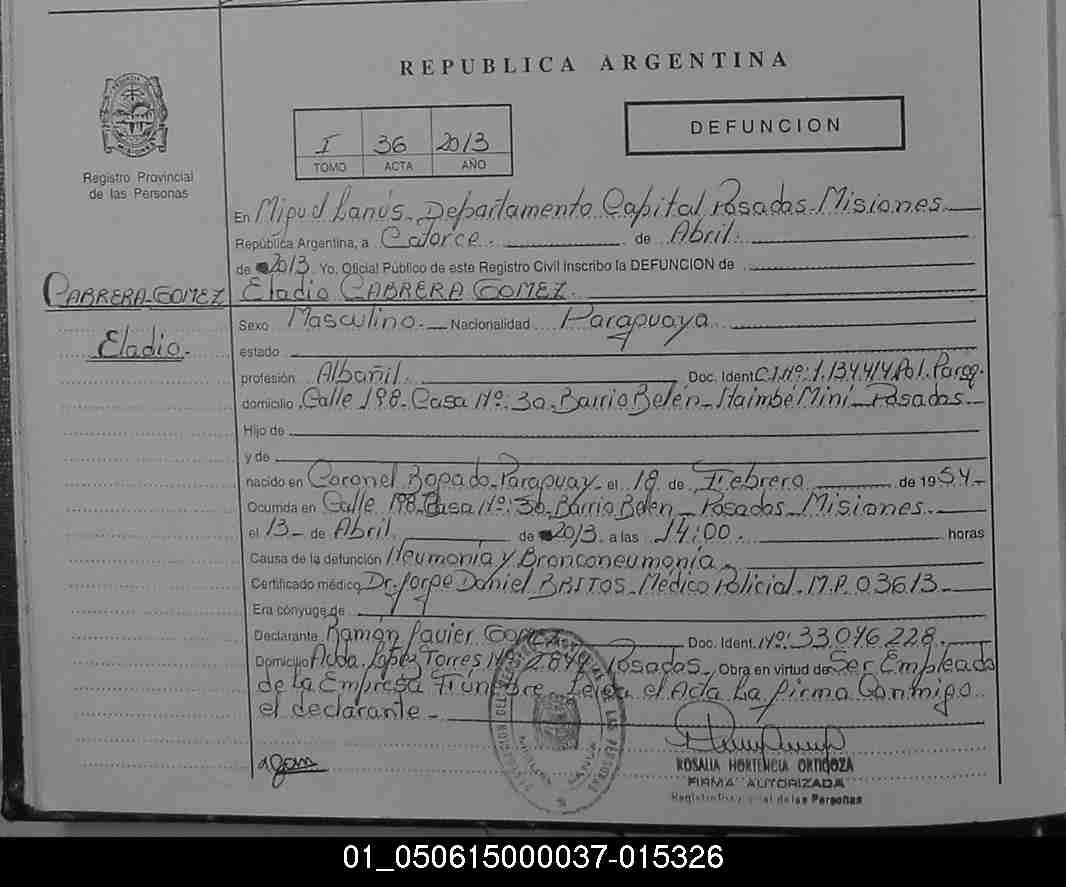 REPUBLICA ARGENTINA
I 36 2013
TOMO ACTA AÑO
DEFUNCION
Registro Provincial
de las Personas
En Miguel Lanús. Departamento Capital Posadas Misiones
República Argentina, a Catorce. de Abril.
de 2013 Yo. Oficial Público de este Registro Civil inscribo la DEFUNCION de
CABRERA-GOMEZ
Eladio CABRERA GOMEZ.
Eladio.
Sexo Masculino. Nacionalidad Paraguaya
estado
profesión Albañil. Doc. Ident. C.I.Nº: 1.134414 Pol. Parag.
domicilio Calle 198. Casa Nº: 30. Barrio Belén - Itaimbé Mini - Posadas
Hijo de
y de
nacido en Coronel Bogado. Paraguay el 18 de Febrero de 1954
Ocurrida en Calle 198. Casa Nº: 30. Barrio Belén - Posadas Misiones.
el 13 de Abril. de 2013 a las 14:00. horas
Causa de la defunción Neumonía y Bronconeumonía
Certificado médico Dr. Jorge Daniel BRITOS - Médico Policial. M.P. 03613
Era cónyuge de
Declarante Ramón Javier Gomez Doc. Ident. Nº: 33.046.228.
Domicilio Acda. López Torres Nº 2844 Posadas. Obra en virtud de Ser Empleado
de la Empresa Fúnebre Leída el Acta La firma Conmigo
el declarante
ROSALIA HORTENCIA ORTIGOZA
FIRMA AUTORIZADA
de las Personas
01_050615000037-015326